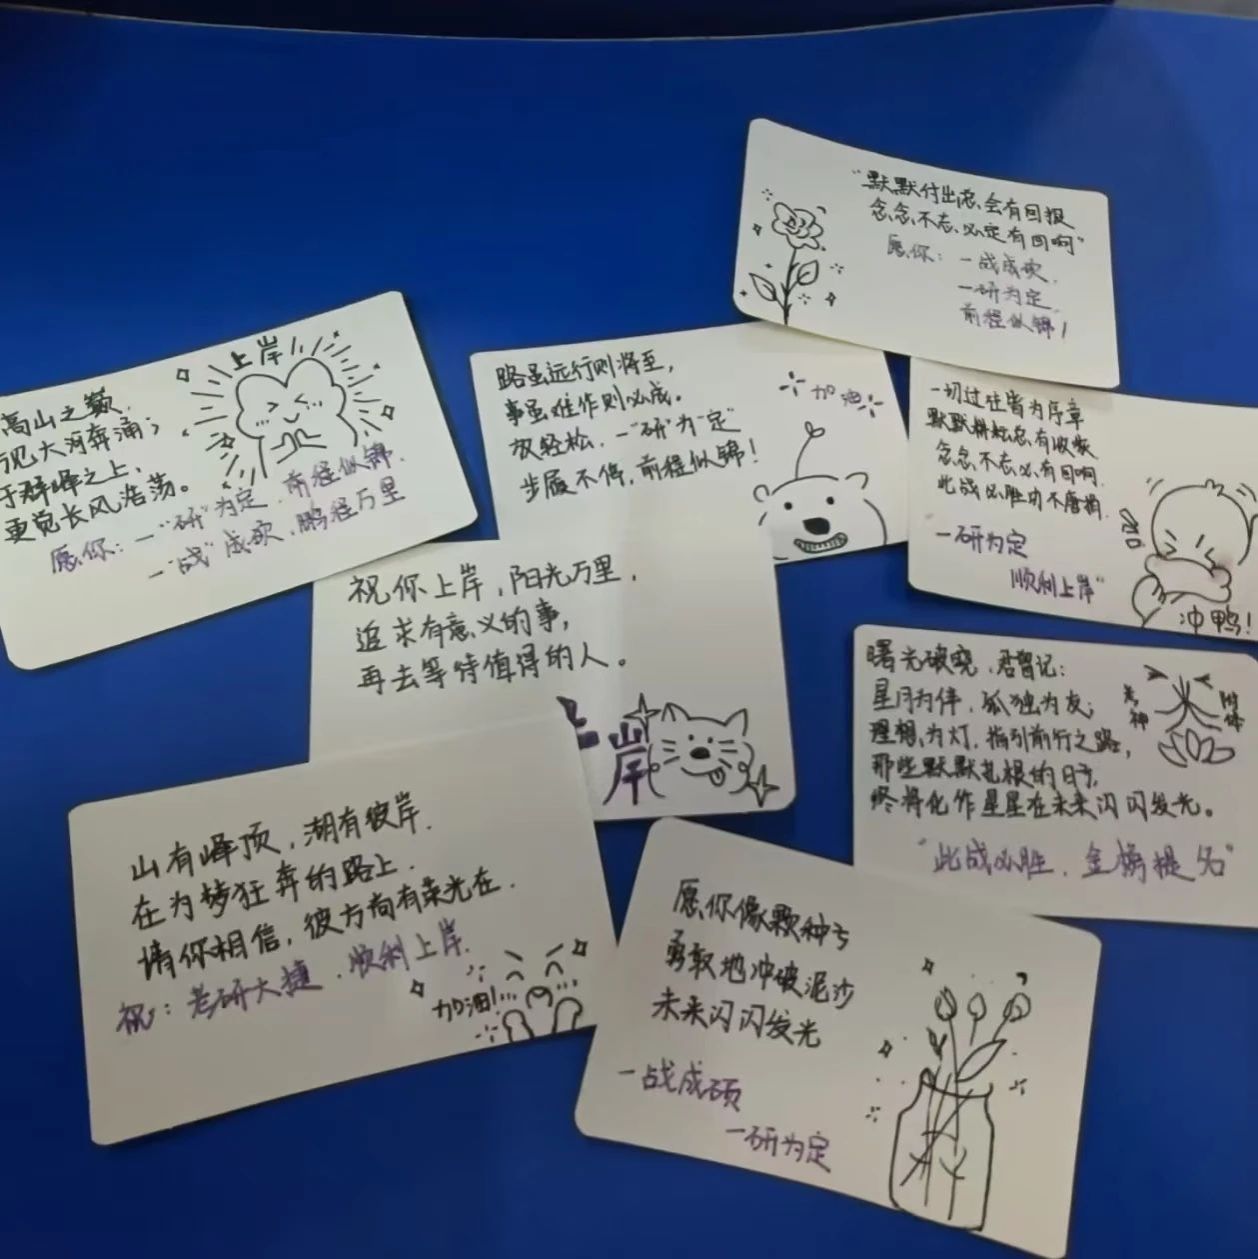 上岸
高山之巅，
见大河奔涌；
于群峰之上，
更觉长风浩荡。
愿你：一"研"为定，前程似锦．
一"战"成硕，鹏程万里
路虽远行则将至，
事虽难作则必成。
放轻松，一"研"为"定"
步履不停，前程似锦！
加油
"默默付出总会有回报
念念不忘、必定有回响"
愿你：一战成硕，
一研为定，
前程似锦！
一切过往皆为序章
默默耕耘总有收获
念念不忘必有回响
此战必胜功不唐捐．
"一研为定
顺利上岸"
冲鸭！
祝你上岸，阳光万里，
追求有意义的事，
再去等待值得的人。
上岸
曙光破晓，君留记：
星月为伴，孤独为友；
理想为灯，指引前行之路，
那些默默扎根的日子，
终将化作星星在未来闪闪发光。
考神
附体
"此战必胜，金榜提名"
山有峰顶，湖有彼岸．
在为梦狂奔的路上．
请你相信，彼方尚有荣光在．
祝：考研大捷，顺利上岸．
加油！
愿你像颗种子
勇敢地冲破泥沙
未来闪闪发光
一战成硕
一研为定